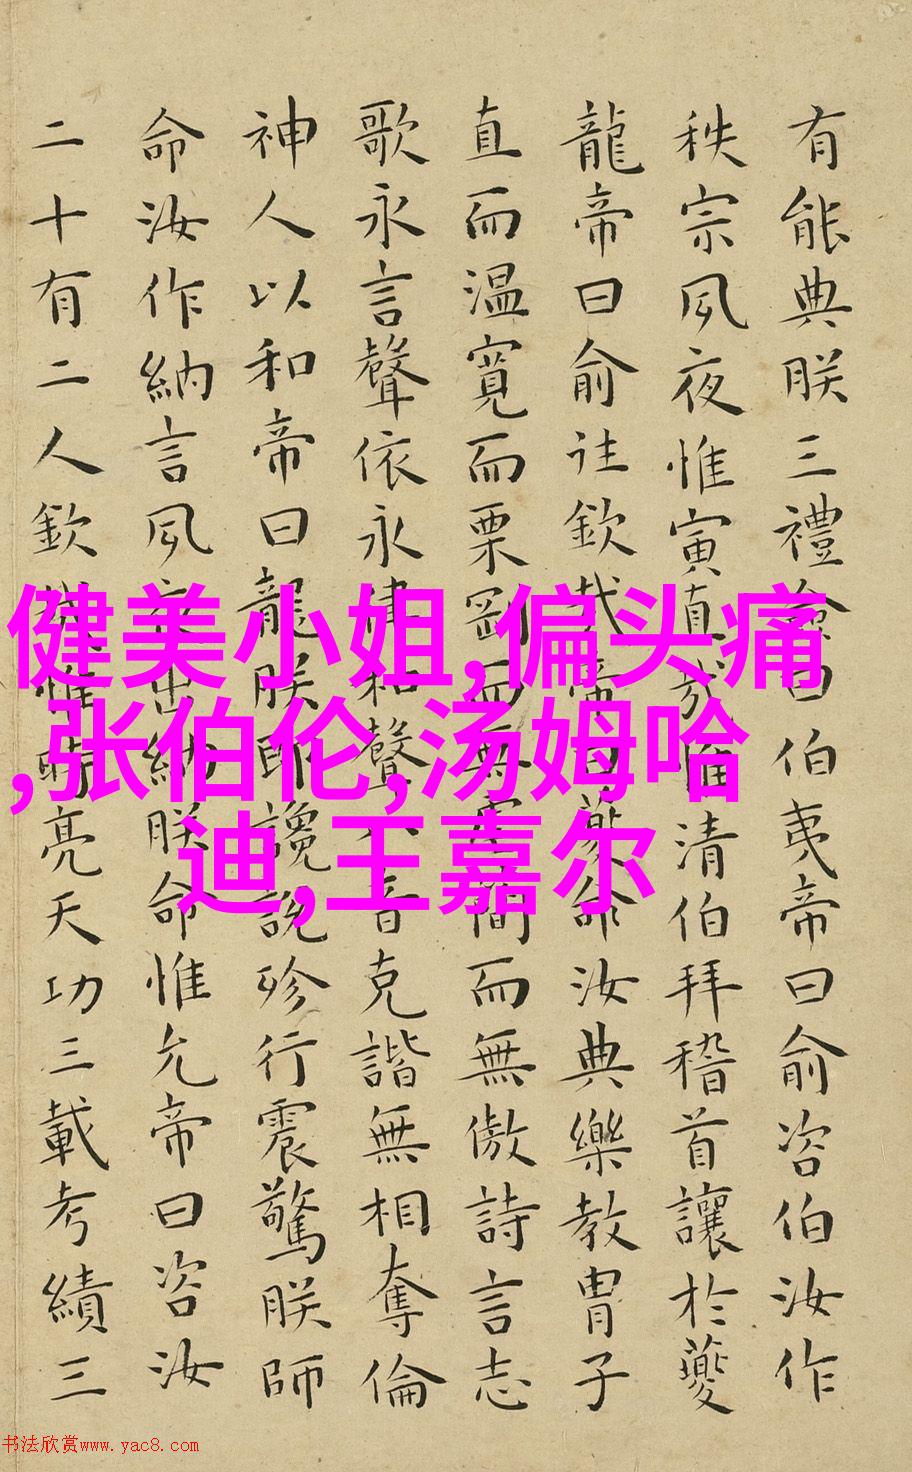 有能典朕三禮僉曰伯夷帝曰俞咨伯汝作
秩宗夙夜惟寅直哉惟清伯拜稽首讓於夔
龍帝曰俞往欽哉帝曰夔命汝典樂教胄子
直而温寬而栗剛而無虐簡而無傲詩言志
歌永言聲依永律和聲八音克諧無相奪倫
神人以和帝曰龍朕堲讒說殄行震驚朕師
命汝作納言夙夜出納朕命惟允帝曰咨汝
二十有二人欽哉惟時亮天功三載考績三
健美小姐,偏头痛
,张伯伦,汤姆哈
迪,王嘉尔
书法欣赏www.yac8.com